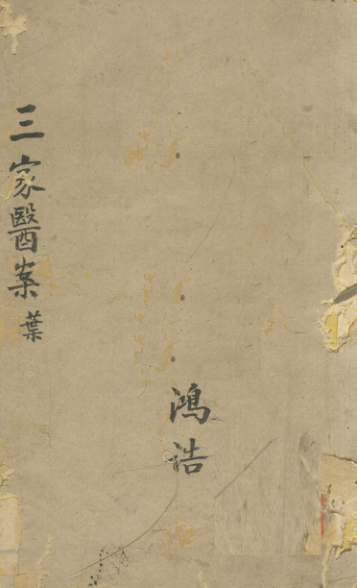 三家醫案 葉
鴻浩